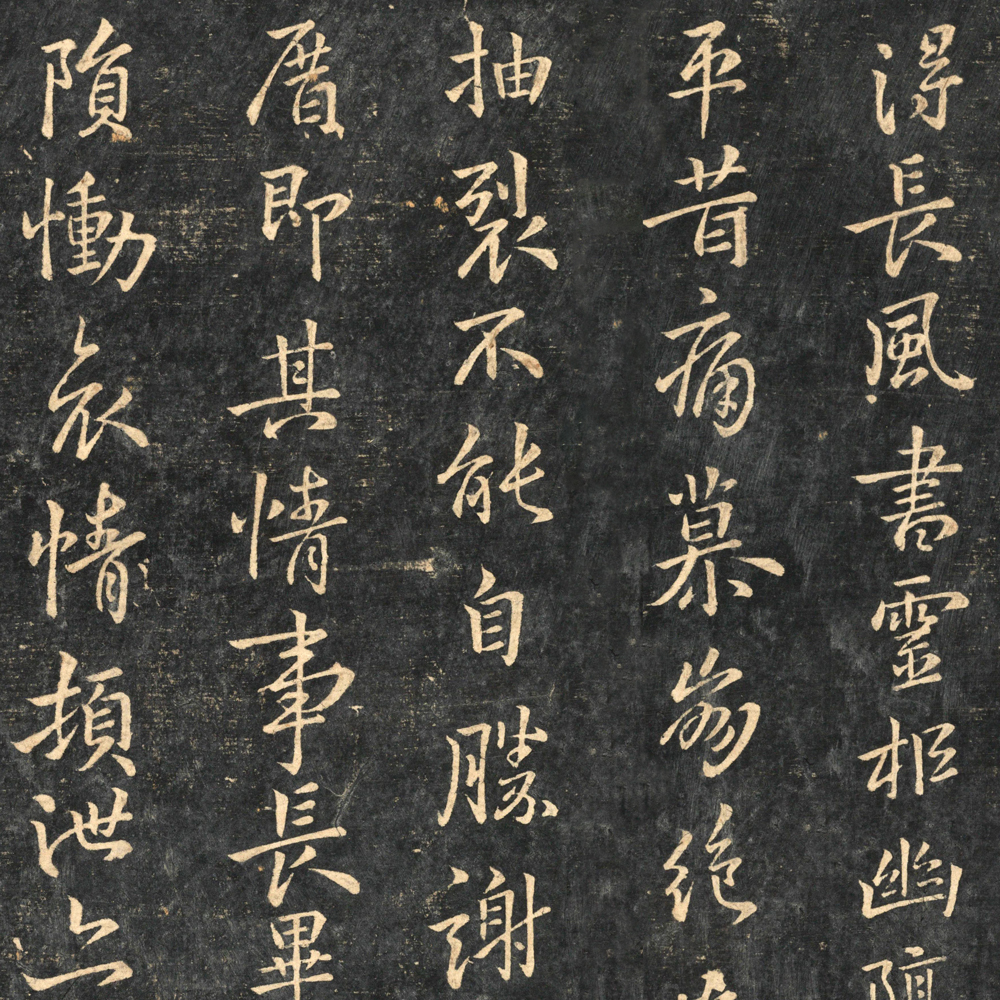 得長風書靈柩幽隔
平昔痛慕崩絕
抽裂不能自勝謝
厝即其情事長畢
隕慟哀情頓泄亡